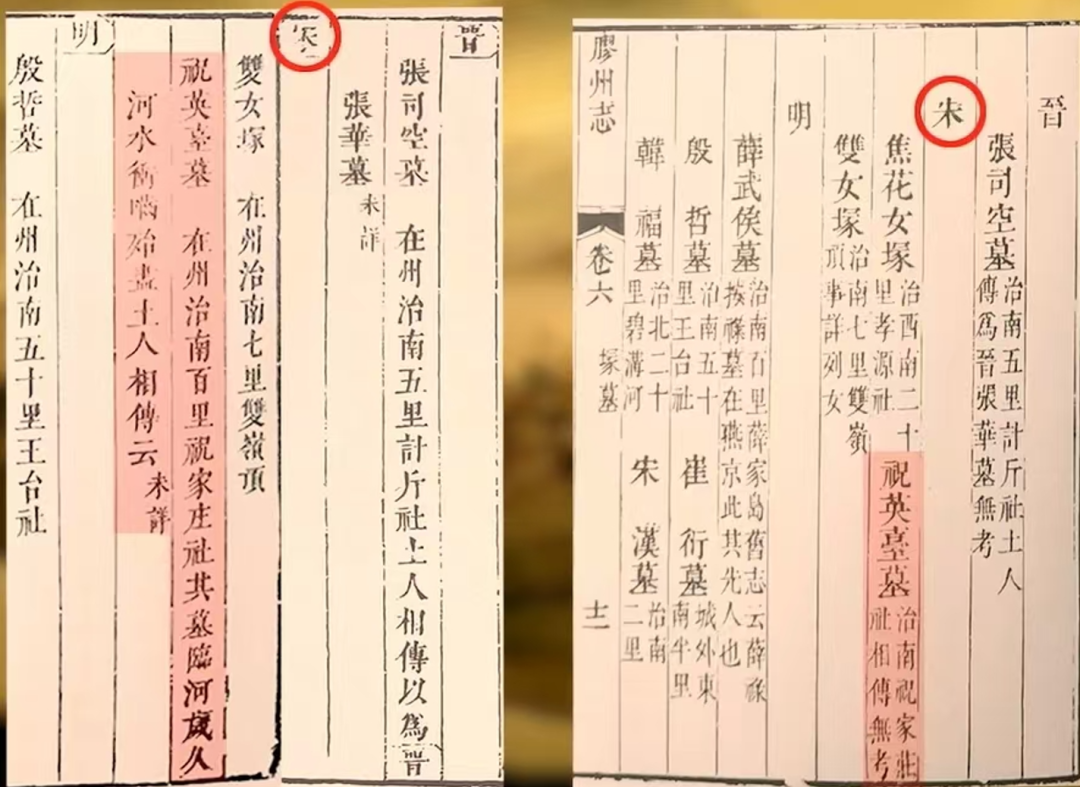 晉
張司空墓 在州治南五里計斤社土人相傳以爲晉
張華墓 未詳
宋
雙女塚 在州治南七里雙嶺頂
祝英臺墓 在州治南百里祝家庄社其墓臨河歲久
河水衝嚙殆盡土人相傳云 未詳
明
殷哲墓 在州治南五十里王台社
晉
張司空墓 治南五里計斤社土人
傳爲晉張華墓無考
宋
焦花女塚 治西南二十
里孝源社
祝英臺墓 治南祝家莊
社相傳無考
雙女塚 治南七里雙嶺
頂事詳列女
明
薛武侯墓 治南百里薛家島舊志云薛祿
揆祿墓在燕京此其先人也
殷哲墓 治南五十
里王台社
崔衍墓 城外東
南半里
韓福墓 治北二十
里碧溝河
宋漢墓 治南
二里
膠州志 卷六 塚墓 十二